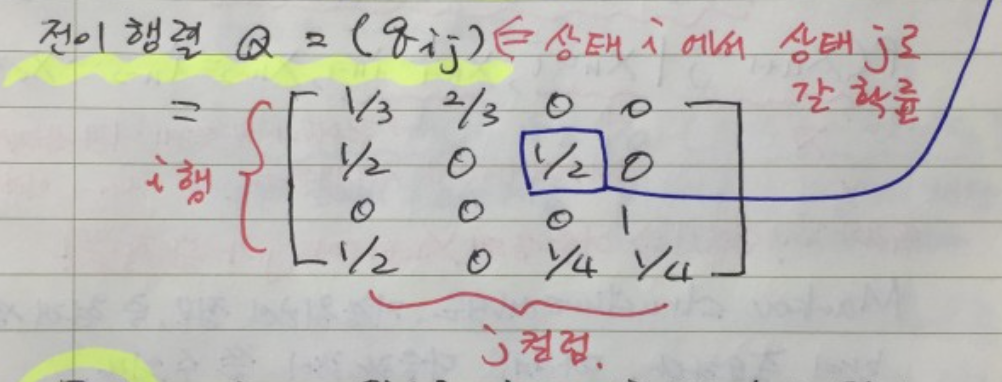 전이 행렬 Q = (qij) ⇐ 상태 i 에서 상태 j로
갈 확률
= 1/3 2/3 0 0
i행 1/2 0 1/2 0
0 0 0 1
1/2 0 1/4 1/4
j컬럼.